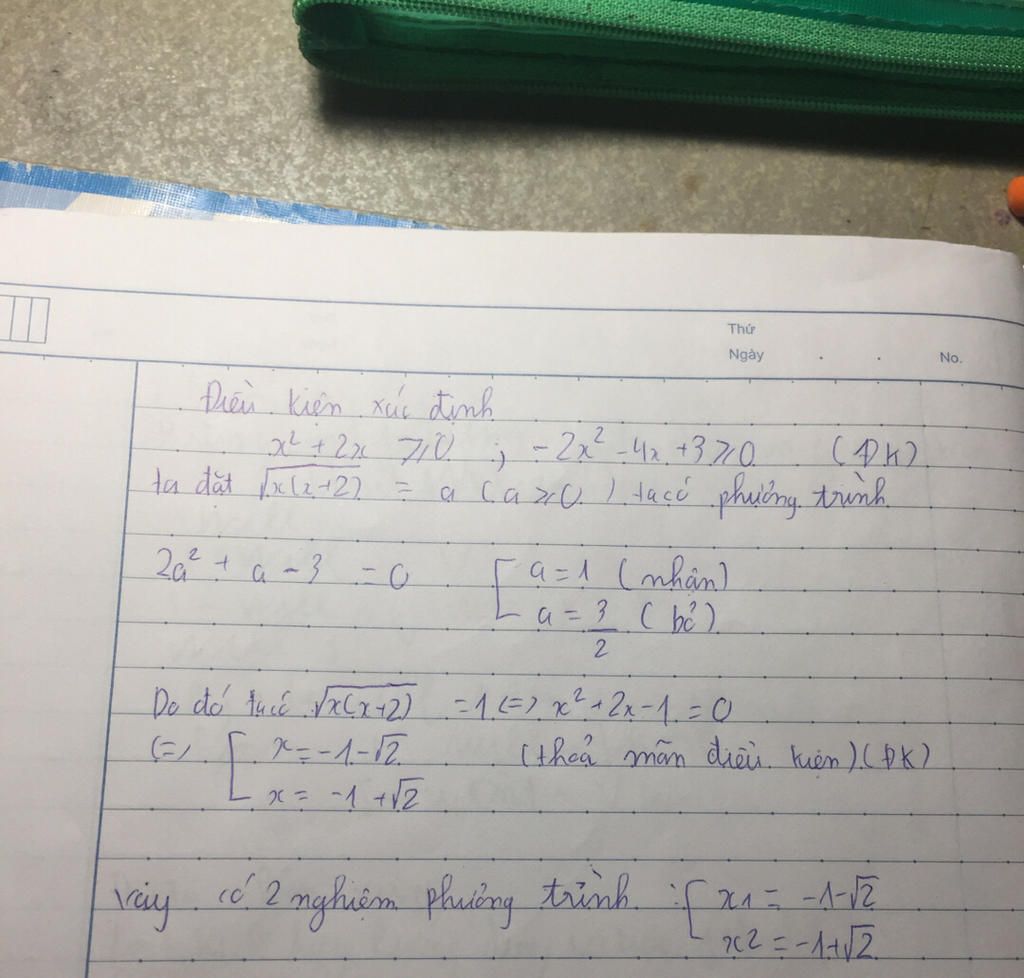 Thứ
Ngày . . No.
Điều kiện xác định
x² + 2x ⩾ 0 ; -2x² - 4x + 3 ⩾ 0 (ĐK)
ta đặt √x(x+2) = a (a ⩾ 0) ta có phương trình
2a² + a - 3 = 0 [ a = 1 (nhận)
a = 3/2 (bỏ)
Do đó ta có √x(x+2) = 1 (=) x² + 2x - 1 = 0
(=) [ x = -1 - √2 (thoả mãn điều kiện) (ĐK)
x = -1 + √2
vậy có 2 nghiệm phương trình : [ x1 = -1 - √2
x2 = -1 + √2